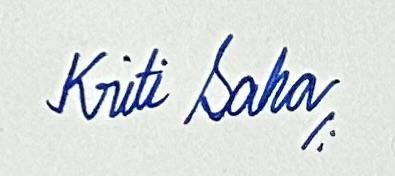 Kriti Saha